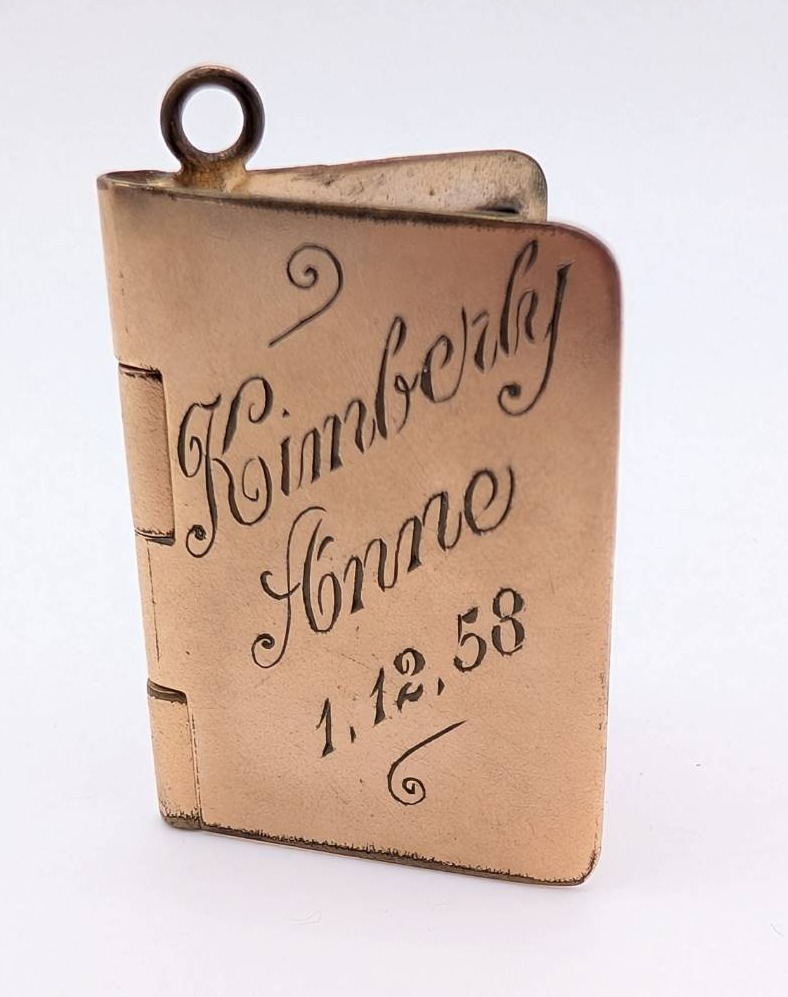 Kimberly
Anne
1,12,58